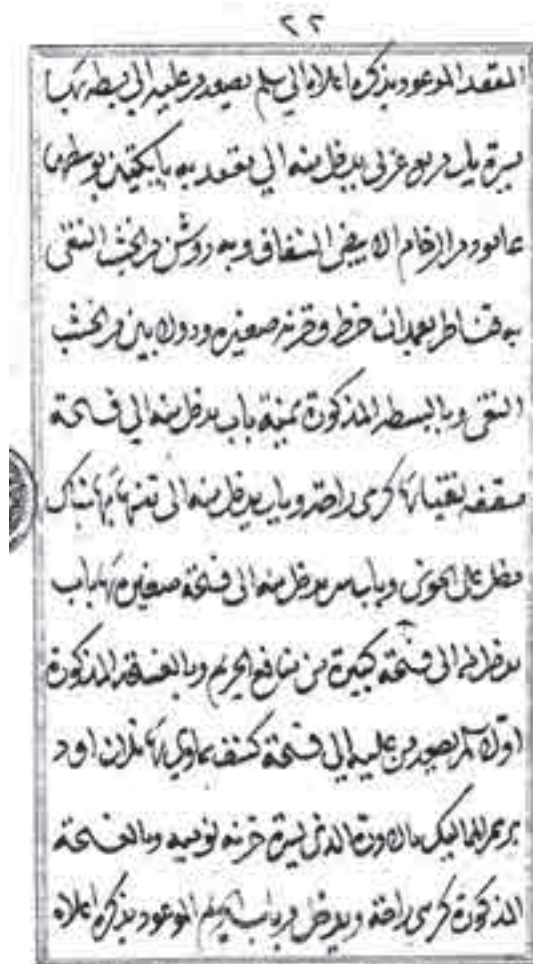 ٢٢
المقعد الموعود بذكره اعلاه الي سلم يصعد من عليه الي بسطه بها
يسرة باب مربع عربى يدخل منه الي مقعد به بايكتين بوسطهما
عامود من الرخام الابيض الشفاف وبه روشن من الخشب النقى
به قناطر بعمدان خرط وخزنه صغيره ودولابين من الخشب
النقى وبالبسطه المذكورة يمنة باب يدخل منه الي فسحة
مسقفه نقيا بها كرسى راحة وباب يدخل منه الى بها شباك
مطل على الحوش وباب يدخل منه الى فسحة صغيره بها باب
يدخل منه الى فسحة كبيرة من منافع الحريم وبالفسحة المذكورة
اولا سلم يصعد من عليه الي فسحة كشف سماوي بها ثلاث اود
برسم المماليك بالاودة الذى يسرة خزنه نوميه وبالفسحة
المذكورة كرسى راحة ويدخل من باب السلم الموعود بذكره اعلاه